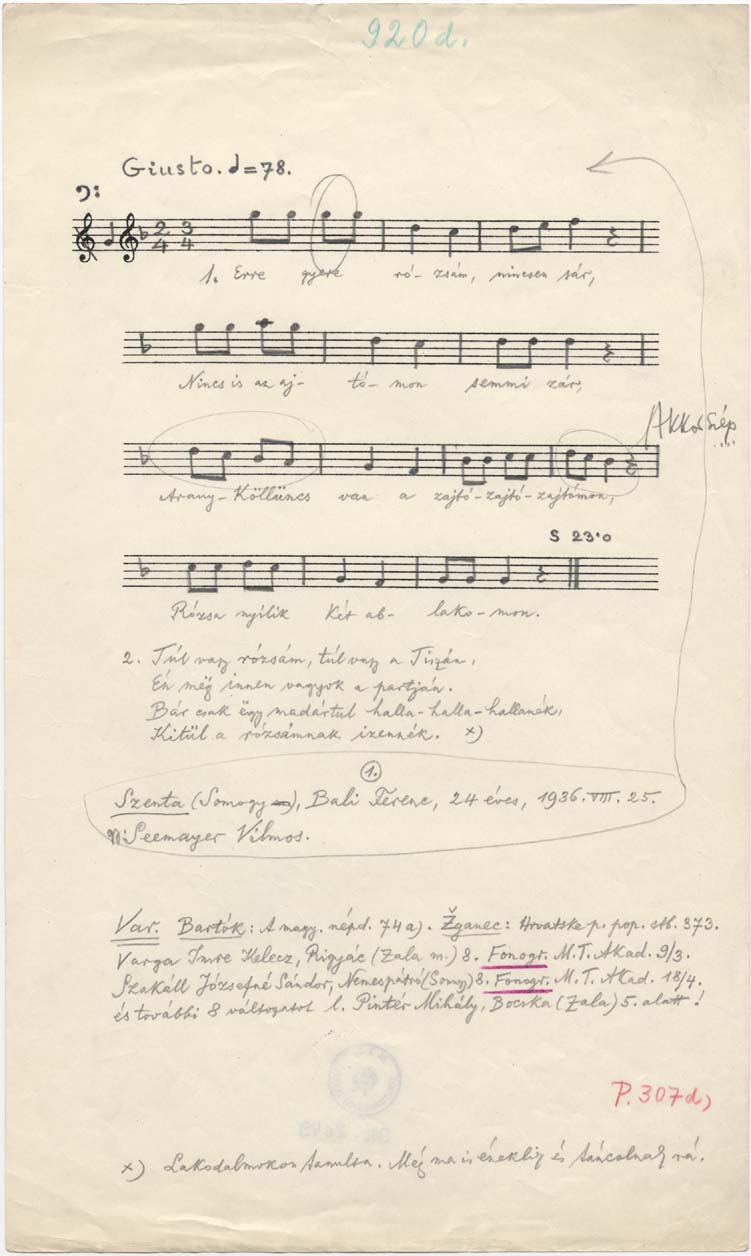 920d.
Giusto. d=78.
2/4 3/4
1. Erre gyere ró- zsám, nincsen sár,
Nincs is az aj- tó- mon semmi zár,
Akkor szép
Arany-Köllüncs van a zajtó-zajtó-zajtómon,
S 23'0
Rózsa nyilik két ab- lako- mon.
2. Túl vagy rózsám, túl vagy a Tiszán,
Én még innen vagyok a partján.
Bár csak ëgy madártul halla-halla-hallanék,
Kitül a rózsámnak izennék. x)
1.
Szenta (Somogy), Bali Ferenc, 24 éves, 1936. VIII. 25.
Seemayer Vilmos.
Var. Bartók: A magy. népd. 74a). Žganec: Hrvatske p. pop. stb. 373.
Varga Imre Kelecz, Rigyác (Zala m.) 8. Fonogr. M.T. Akad. 9/3.
Szakáll Józsefné Sándor, Nemespátró (Somogy) 8. Fonogr. M.T. Akad. 18/4.
és további 8 változatot l. Pintér Mihály, Bocska (Zala) 5. alatt!
P. 307d)
x) Lakodalmokon tanulta. Még ma is éneklik és táncolnak rá.